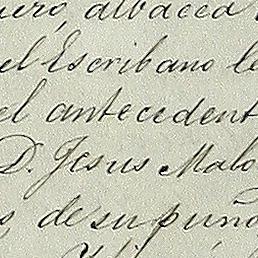 albacea
el Escribano
el antecedent
D. Jesus Malo
de su puño